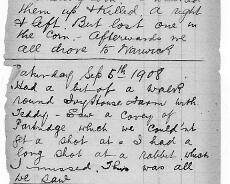 them up & killed a right
& left. But lost one in
the corn. Afterwards we
all drove to Warwick
Saturday Sep 5th 1908.
Had a bit of a walk
round Farm with
Teddy - Saw a covey of
Partridge which we could'nt
get a shot at - I had a
long shot at a rabbit which
I missed. This was all
we saw